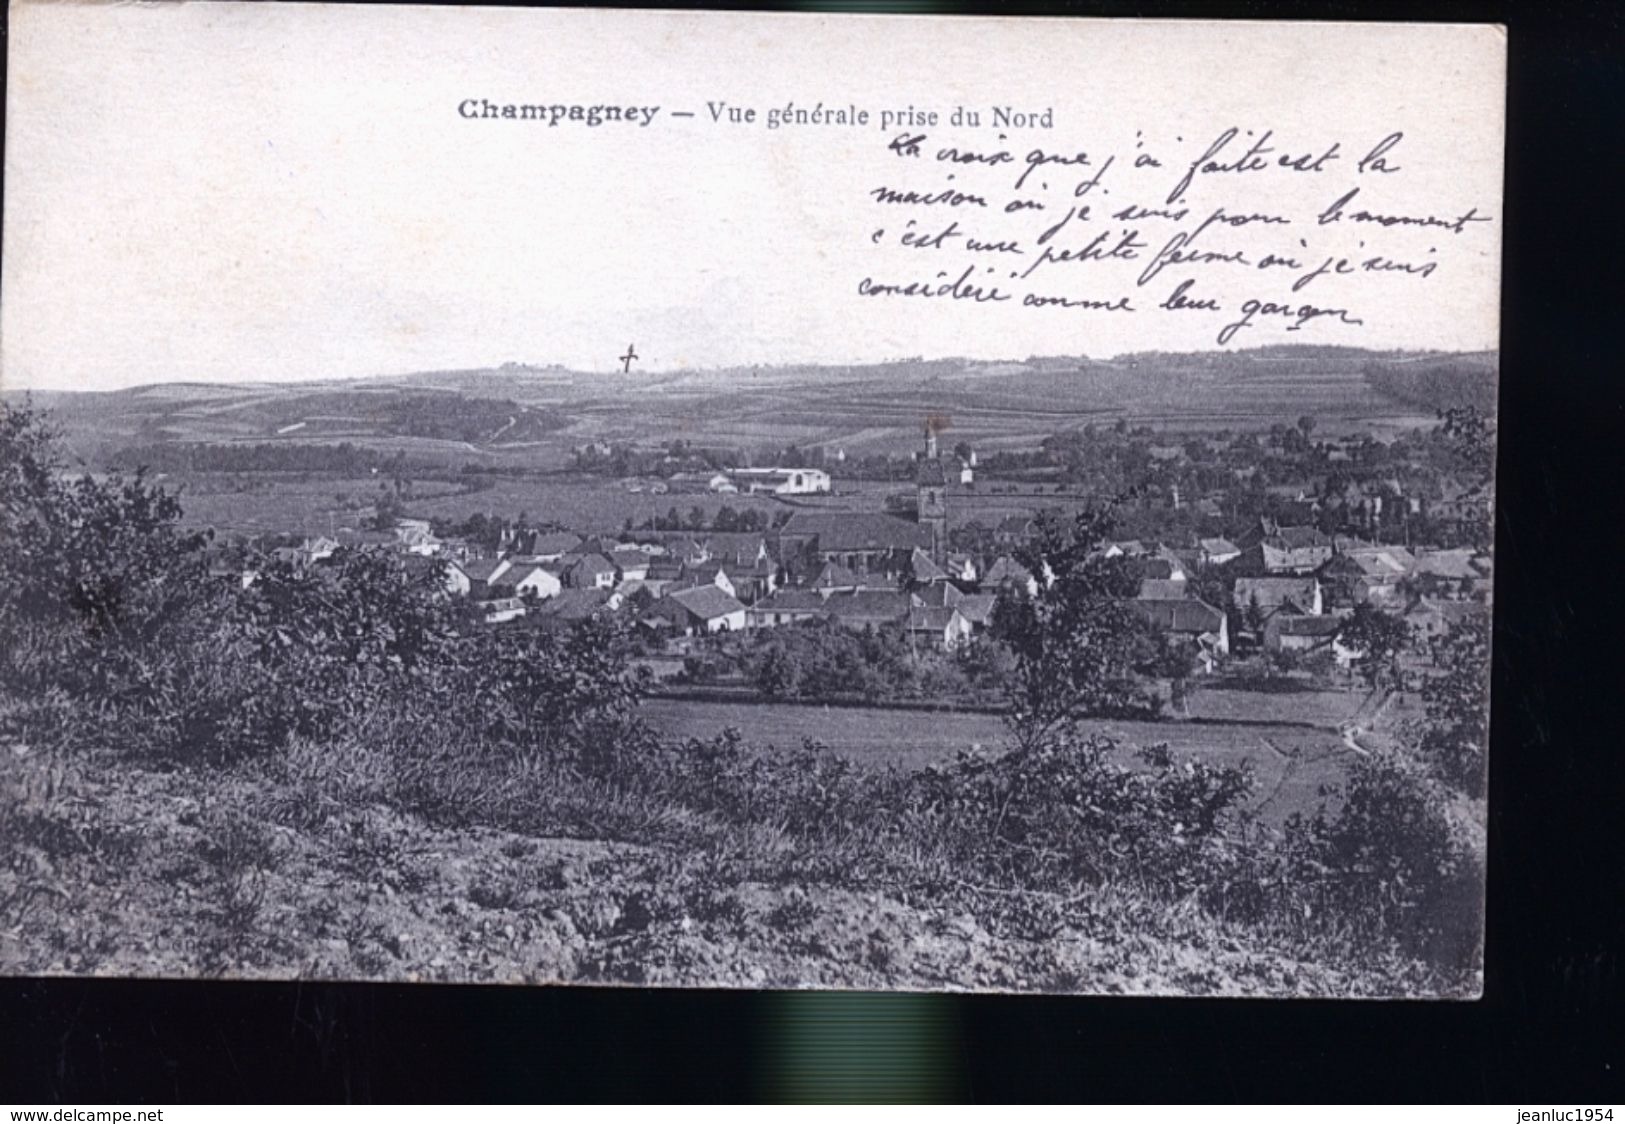 Champagney — Vue générale prise du Nord
La croix que j'ai faite est la
maison où je suis pour le moment
c'est une petite ferme où je suis
considéré comme leur garçon
www.delcampe.net
jeanluc1954